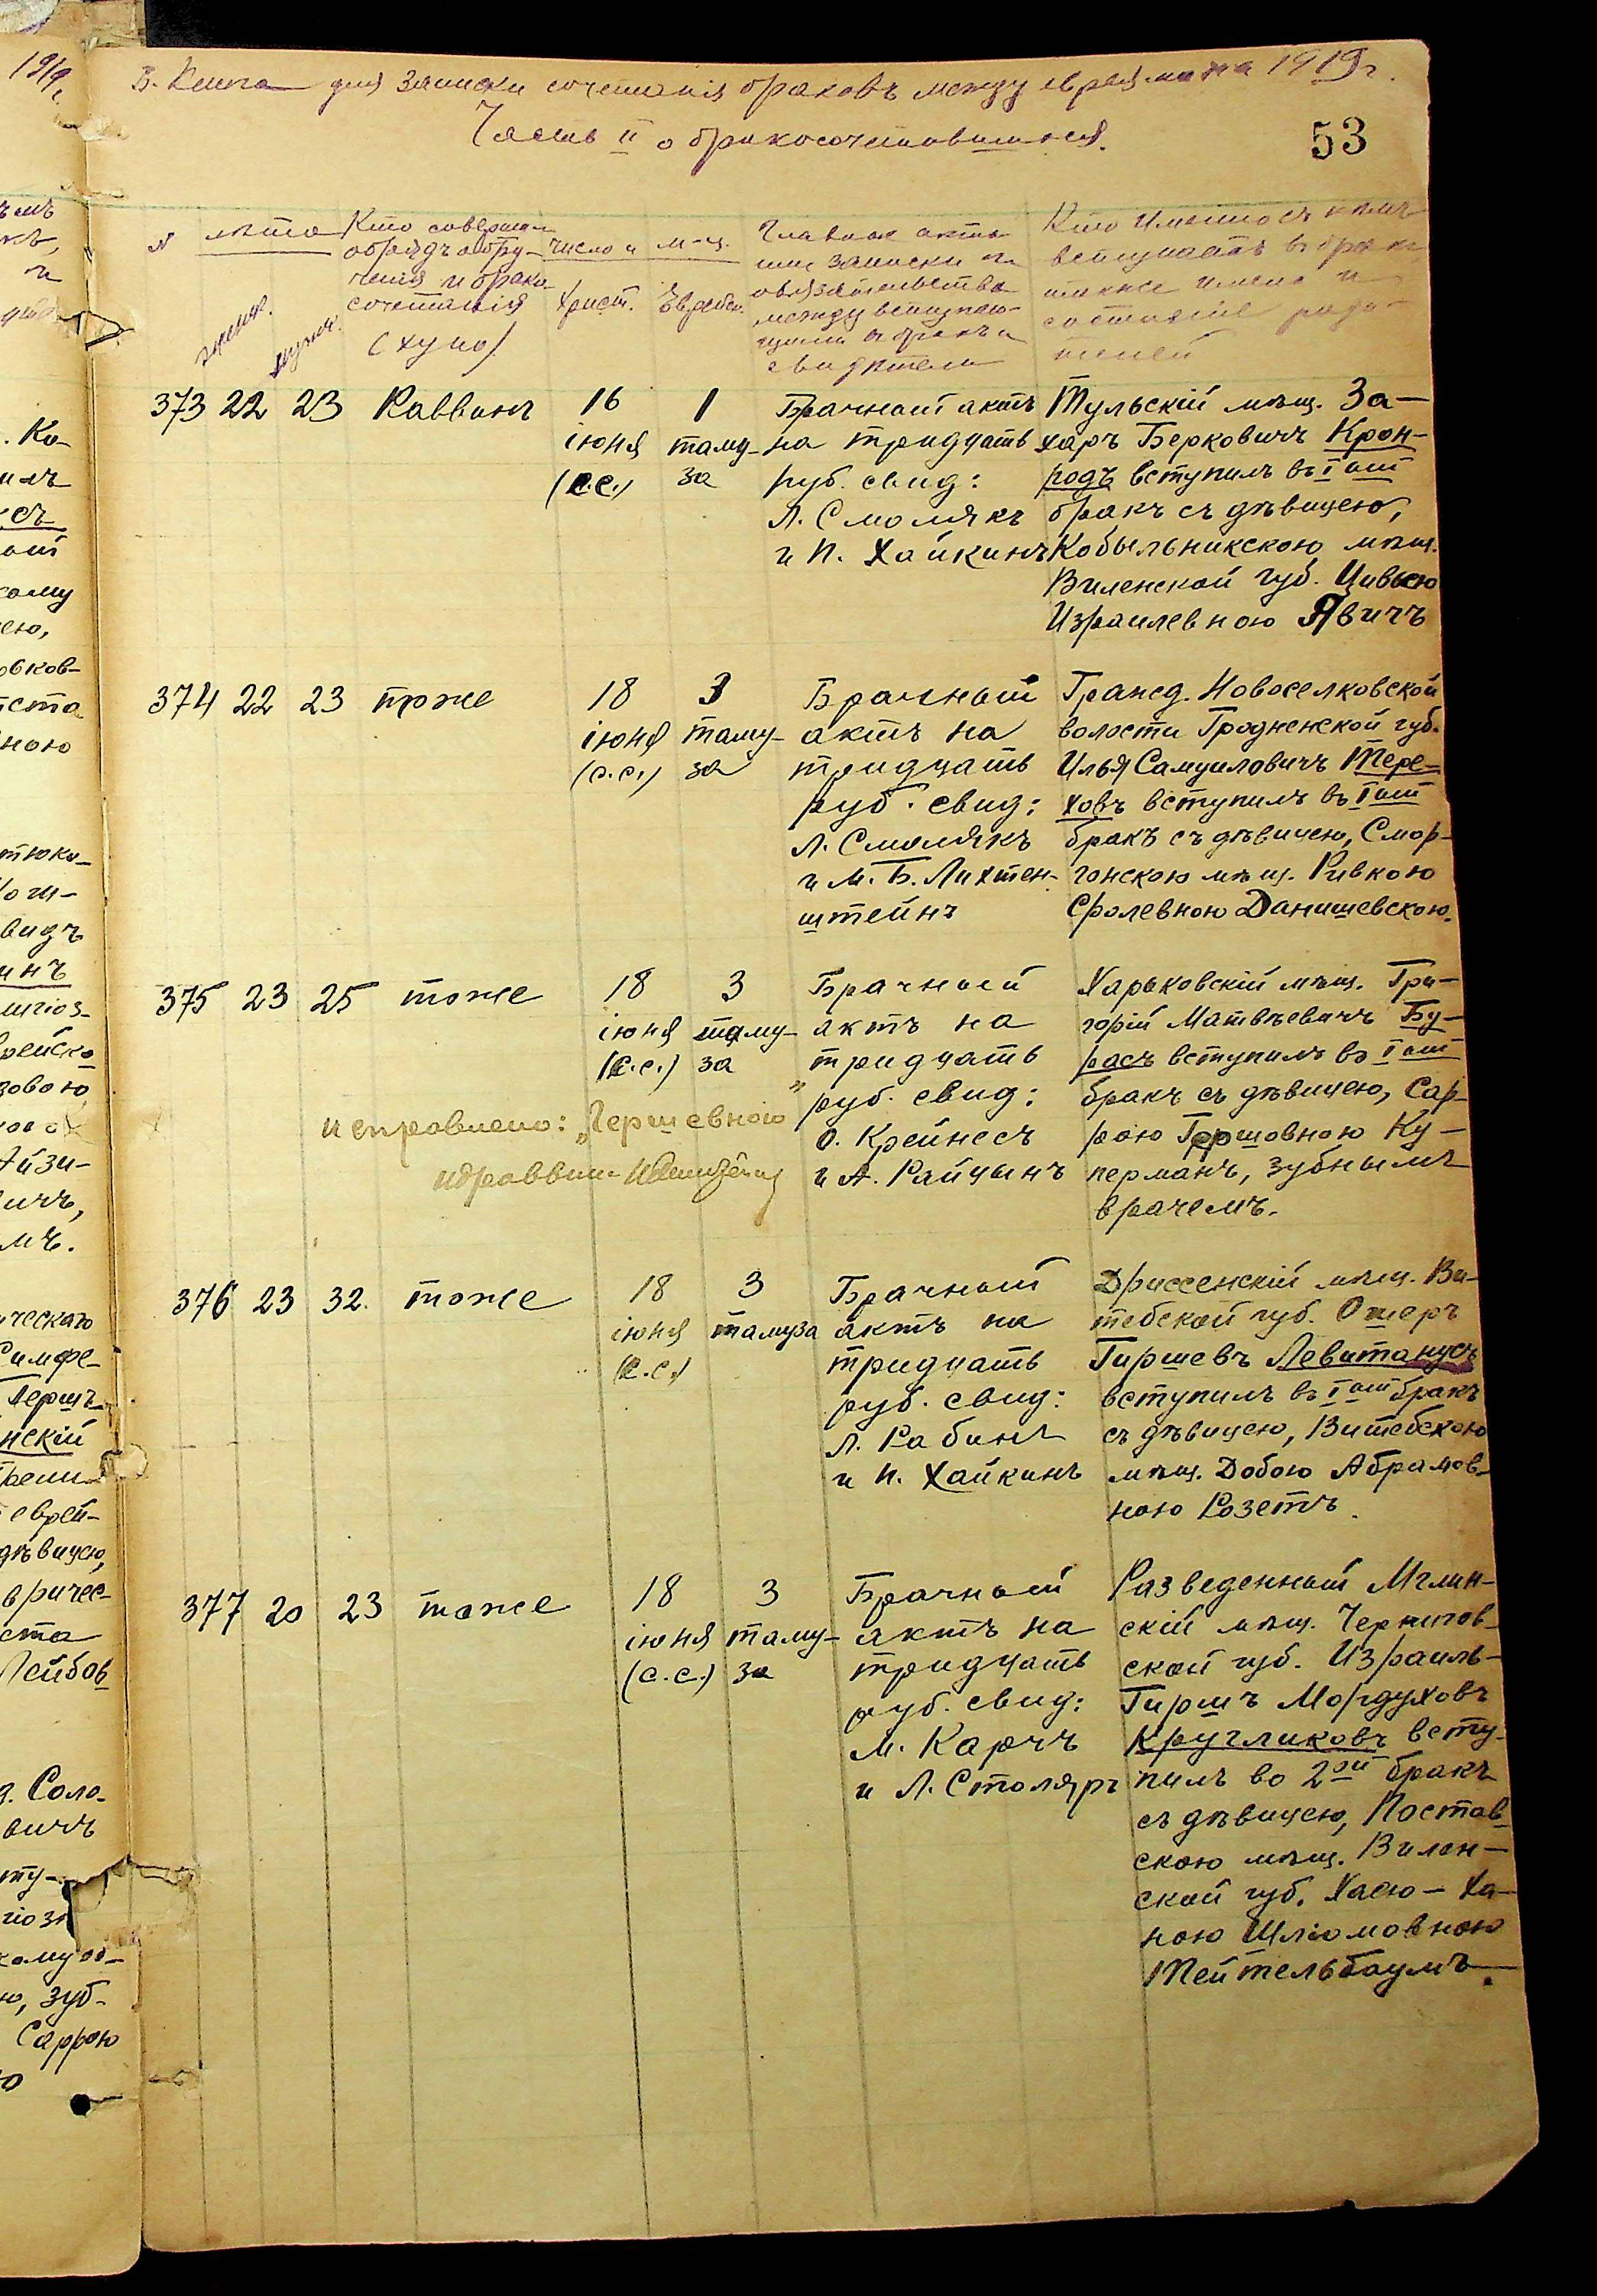 В. Книга для записки сочетанія браковъ между евреями на 1919 г.
Часть II о бракосочетавшихся.
53
№
лѣта
женск.
мужч.
Кто совершал
обрядъ обру-
ченія и брако-
сочетанія
(хупо)
число и м-ц.
Христ. Еврейск.
Главные акты
или записки и
обязательства
между вступаю-
щими въ бракъ и
свидѣтели
Кто именно съ кѣмъ
вступаетъ въ бракъ
также имена и
состояніе роди-
телей
373 22 23 Раввинъ
16
іюня
(с.с.)
1
таму-
за
Брачный актъ
на тридцать
руб. свид:
Л. Смолякъ
и П. Хайкинъ
Тульскій мѣщ. За-
харъ Берковичъ Крон-
родъ вступилъ въ Iый
бракъ съ дѣвицею,
Кобыльникскою мѣщ.
Виленской губ. Цивьею
Израилевною Явичъ
374 22 23 тоже
18
іюня
(с.с.)
3
таму-
за
Брачный
актъ на
тридцать
руб. свид:
Л. Смолякъ
и М. Б. Лихтен-
штейнъ
Гражд. Новоселковской
волости Гродненской губ.
Илья Самуиловичъ Тере-
ховъ вступилъ въ Iый
бракъ съ дѣвицею, Смор-
гонскою мѣщ. Ривкою
Сролевною Данишевскою.
375 23 25 тоже
18
іюня
(с.с.)
3
таму-
за
Брачный
актъ на
тридцать
руб. свид:
О. Крейнесъ
и А. Райцынъ
Харьковскій мѣщ. Гри-
горій Матвѣевичъ Бу-
расъ вступилъ въ Iый
бракъ съ дѣвицею, Сар-
рою Гершовною Ку-
перманъ, зубнымъ
врачемъ.
исправлено: „Гершевною"
376 23 32. тоже
18
іюня
(с.с.)
3
тамуза
Брачный
актъ на
тридцать
руб. свид:
Л. Рабинъ
и П. Хайкинъ
Дриссенскій мѣщ. Ви-
тебской губ. Ошеръ
Гиршевъ Левитанусъ
вступилъ въ Iый бракъ
съ дѣвицею, Витебскою
мѣщ. Добою Абрамов-
ною Розетъ.
377 20 23 тоже
18
іюня
(с.с.)
3
таму-
за
Брачный
актъ на
тридцать
руб. свид:
М. Карчъ
и Л. Столяръ
Разведенный Мглин-
скій мѣщ. Чернигов-
ской губ. Израиль-
Гиршъ Мордуховъ
Кругликовъ всту-
пилъ во 2ой бракъ
съ дѣвицею, Постав-
скою мѣщ. Вилен-
ской губ. Хасею-Ха-
ною Шліомовною
Тейтельбаумъ.